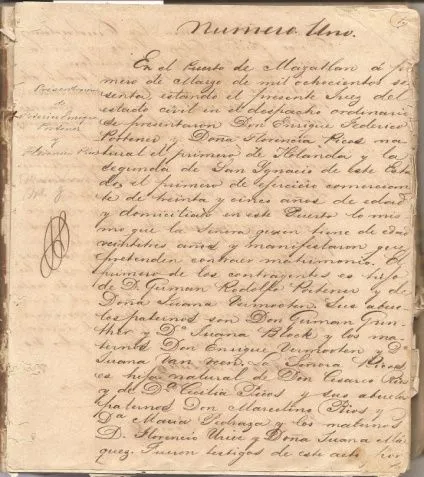 Numero Uno.
Presentacion
de
Federico Enrique
Portener
y
En el Puerto de Mazatlan á pri
mero de Marzo de mil ochocientos se
senta, estando el presente Juez del
estado civil en el despacho ordinario
se presentaron Don Enrique Federico
Portener y Doña Florencia Ricos na
tural el primero de Holanda y la
segunda de San Ignacio de este Esta
do, el primero de ejercicio comercian
te de treinta y cinco años de edad
y domiciliado en este Puerto lo mis
mo que la Señora quien tiene de edad
veintitres años y manifestaron que
pretenden contraer matrimonio. El
primero de los contrayentes es hijo
de D. German Rodolfo Portener y de
Doña Juana Vermooten. Sus abue
los paternos son Don German Gun
ther y Da. Juana Block y los ma
ternos Don Enrique Vermooten y Da.
Juana Van Veen. La Señora Ricos
es hija natural de Don Cesareo
y de Da. Cecilia Picos y sus abuelos
paternos Don Marcelino Rios y
Da. Maria Pedraza y los maternos
D. Florencio Uriez y Doña Juana Már
quez. Fueron testigos de este acto, por